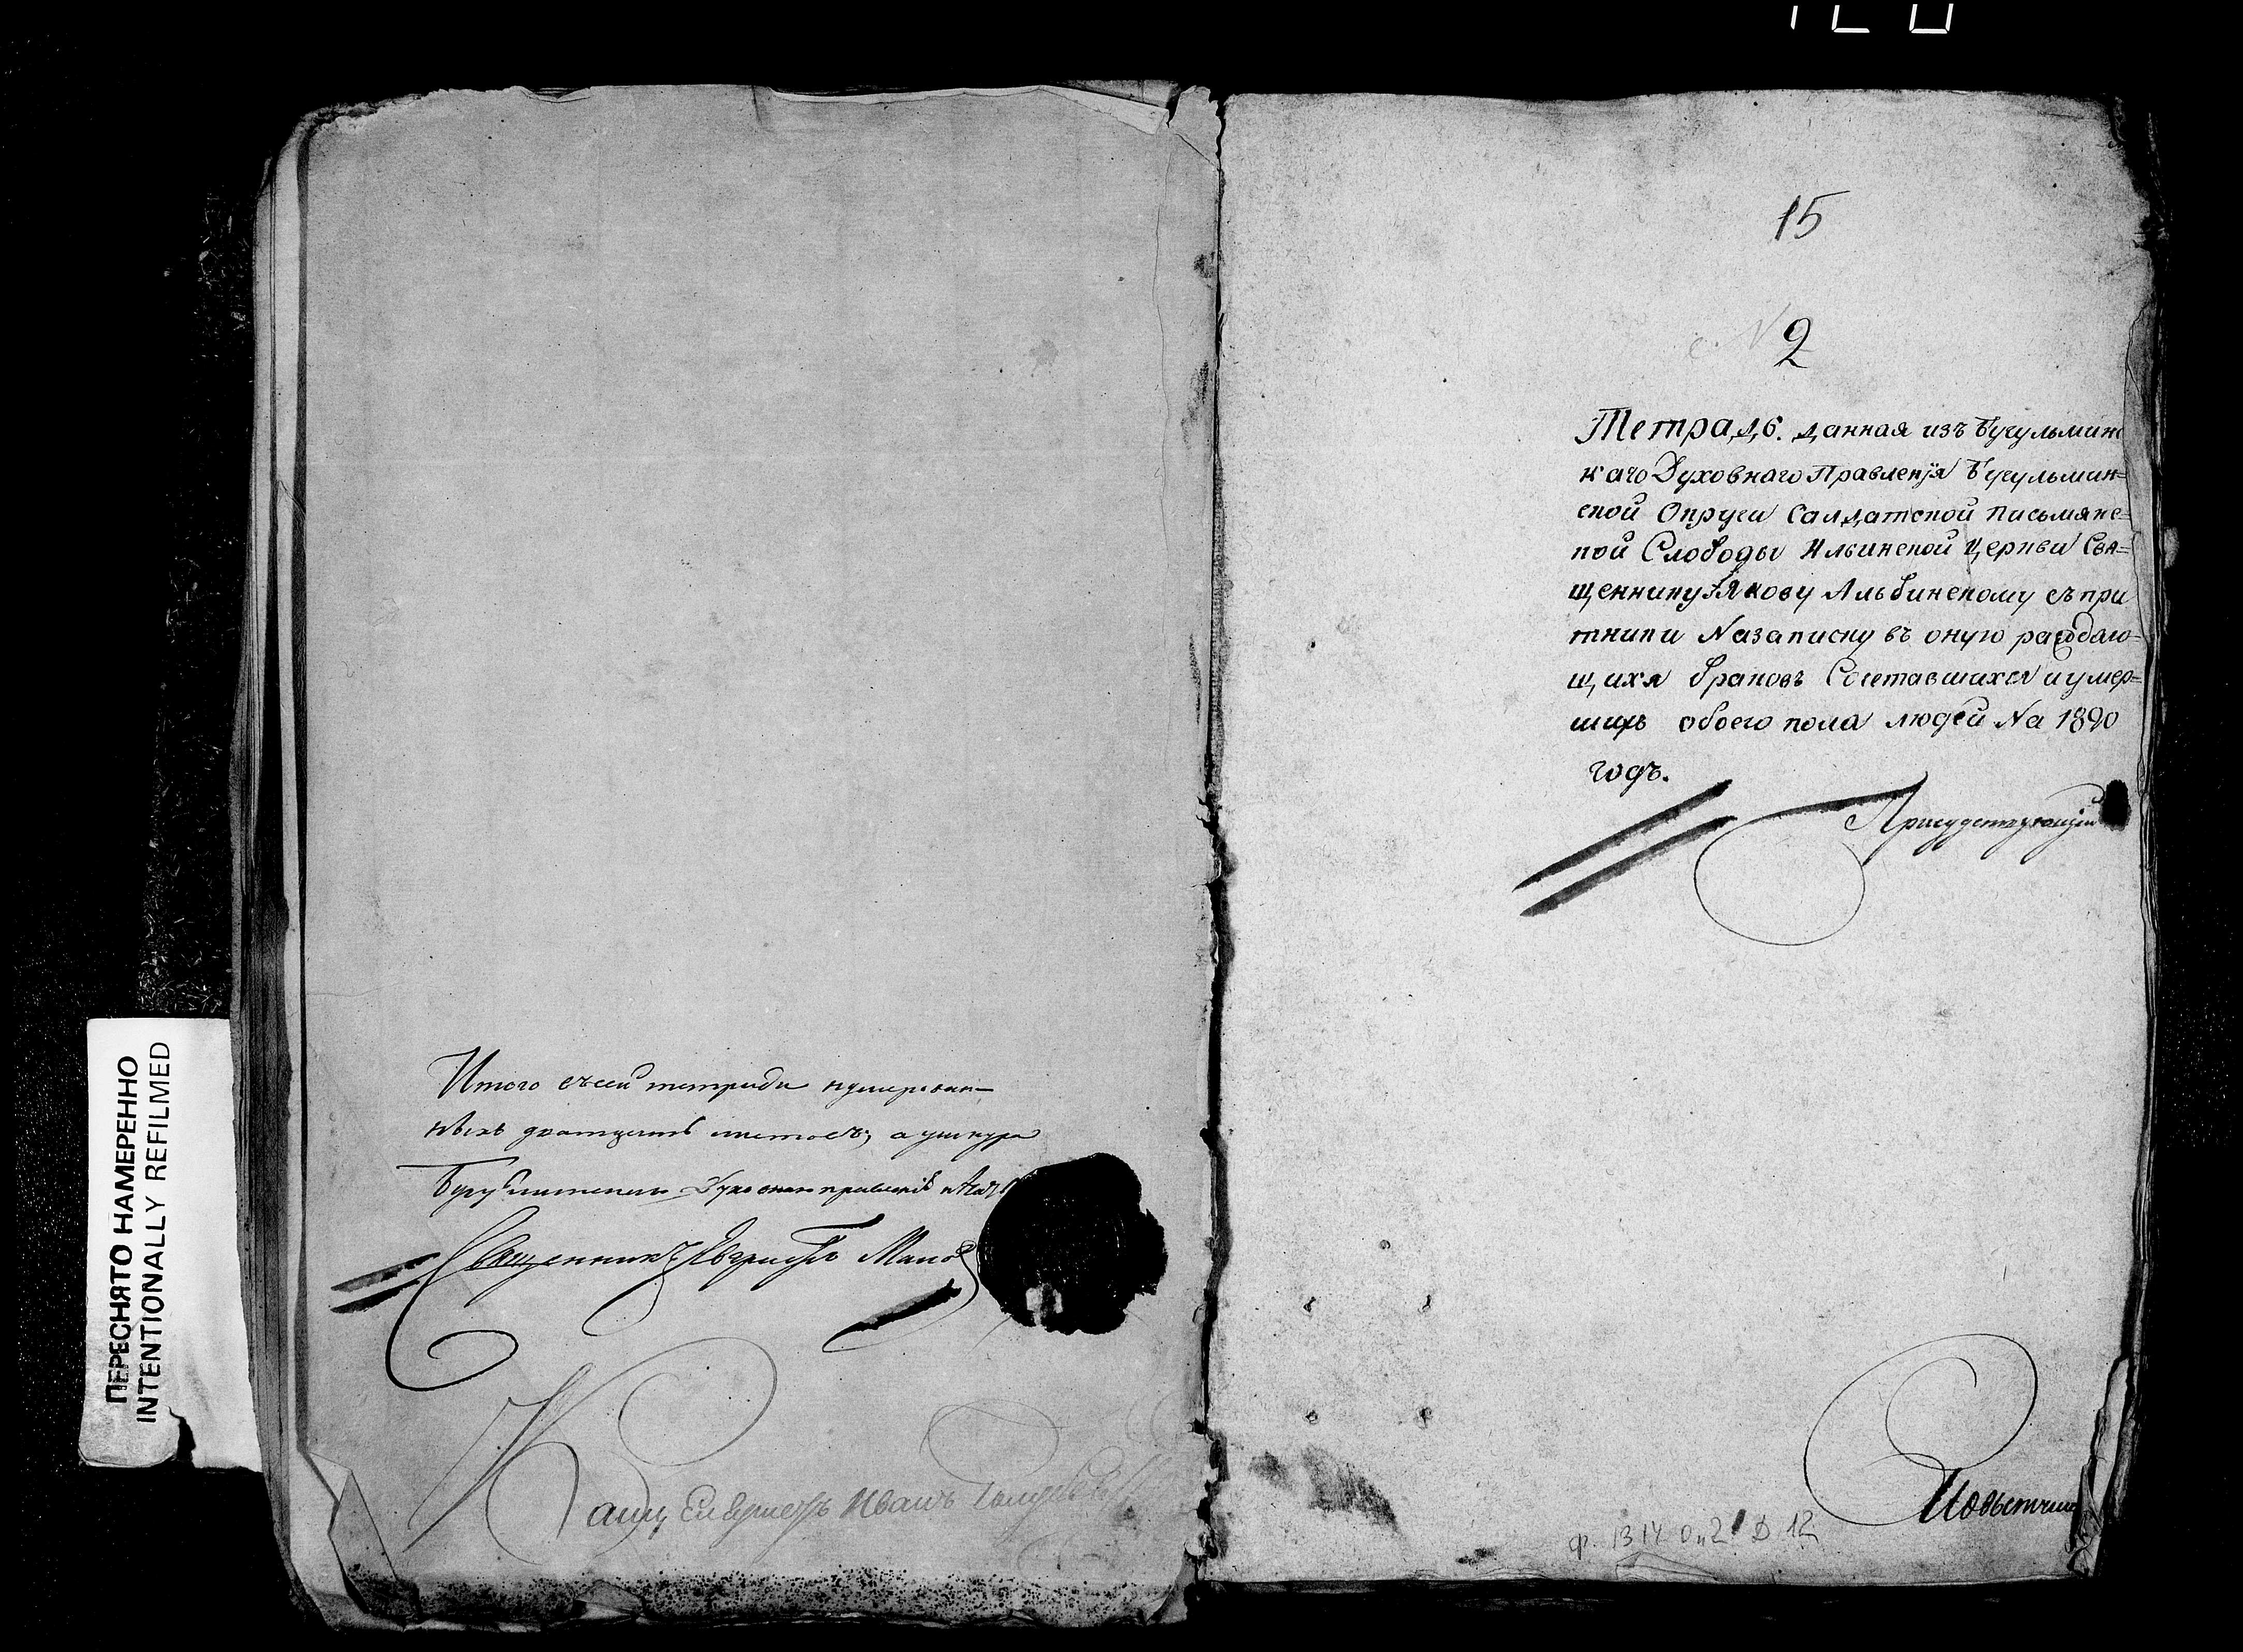 ПЕРЕСНЯТО НАМЕРЕННО
INTENTIONALLY REFILMED
Итого въ сей тетради нумерован-
ныхъ дватцеть листовъ, а у шнура
Бугульминскаго Духовнаго правленія печать
Священникъ Евграфъ
Канц Иванъ
15
№ 2
Тетрадь. данная изъ Бугульминс
каго Духовнаго Правленія Бугульмин=
ской Округи Салдатской Письмянс=
кой Слободы Ильинской Церкви Свя=
щеннику Іякову Альбинскому съ при
тники На записку въ оную раждаю=
щихя браковъ Сочетавшихся и умер=
шихъ обоего пола людей На 1820
годъ.
Присудствующій
Повытчик
Ф. 1314 Оп 2 Д 12